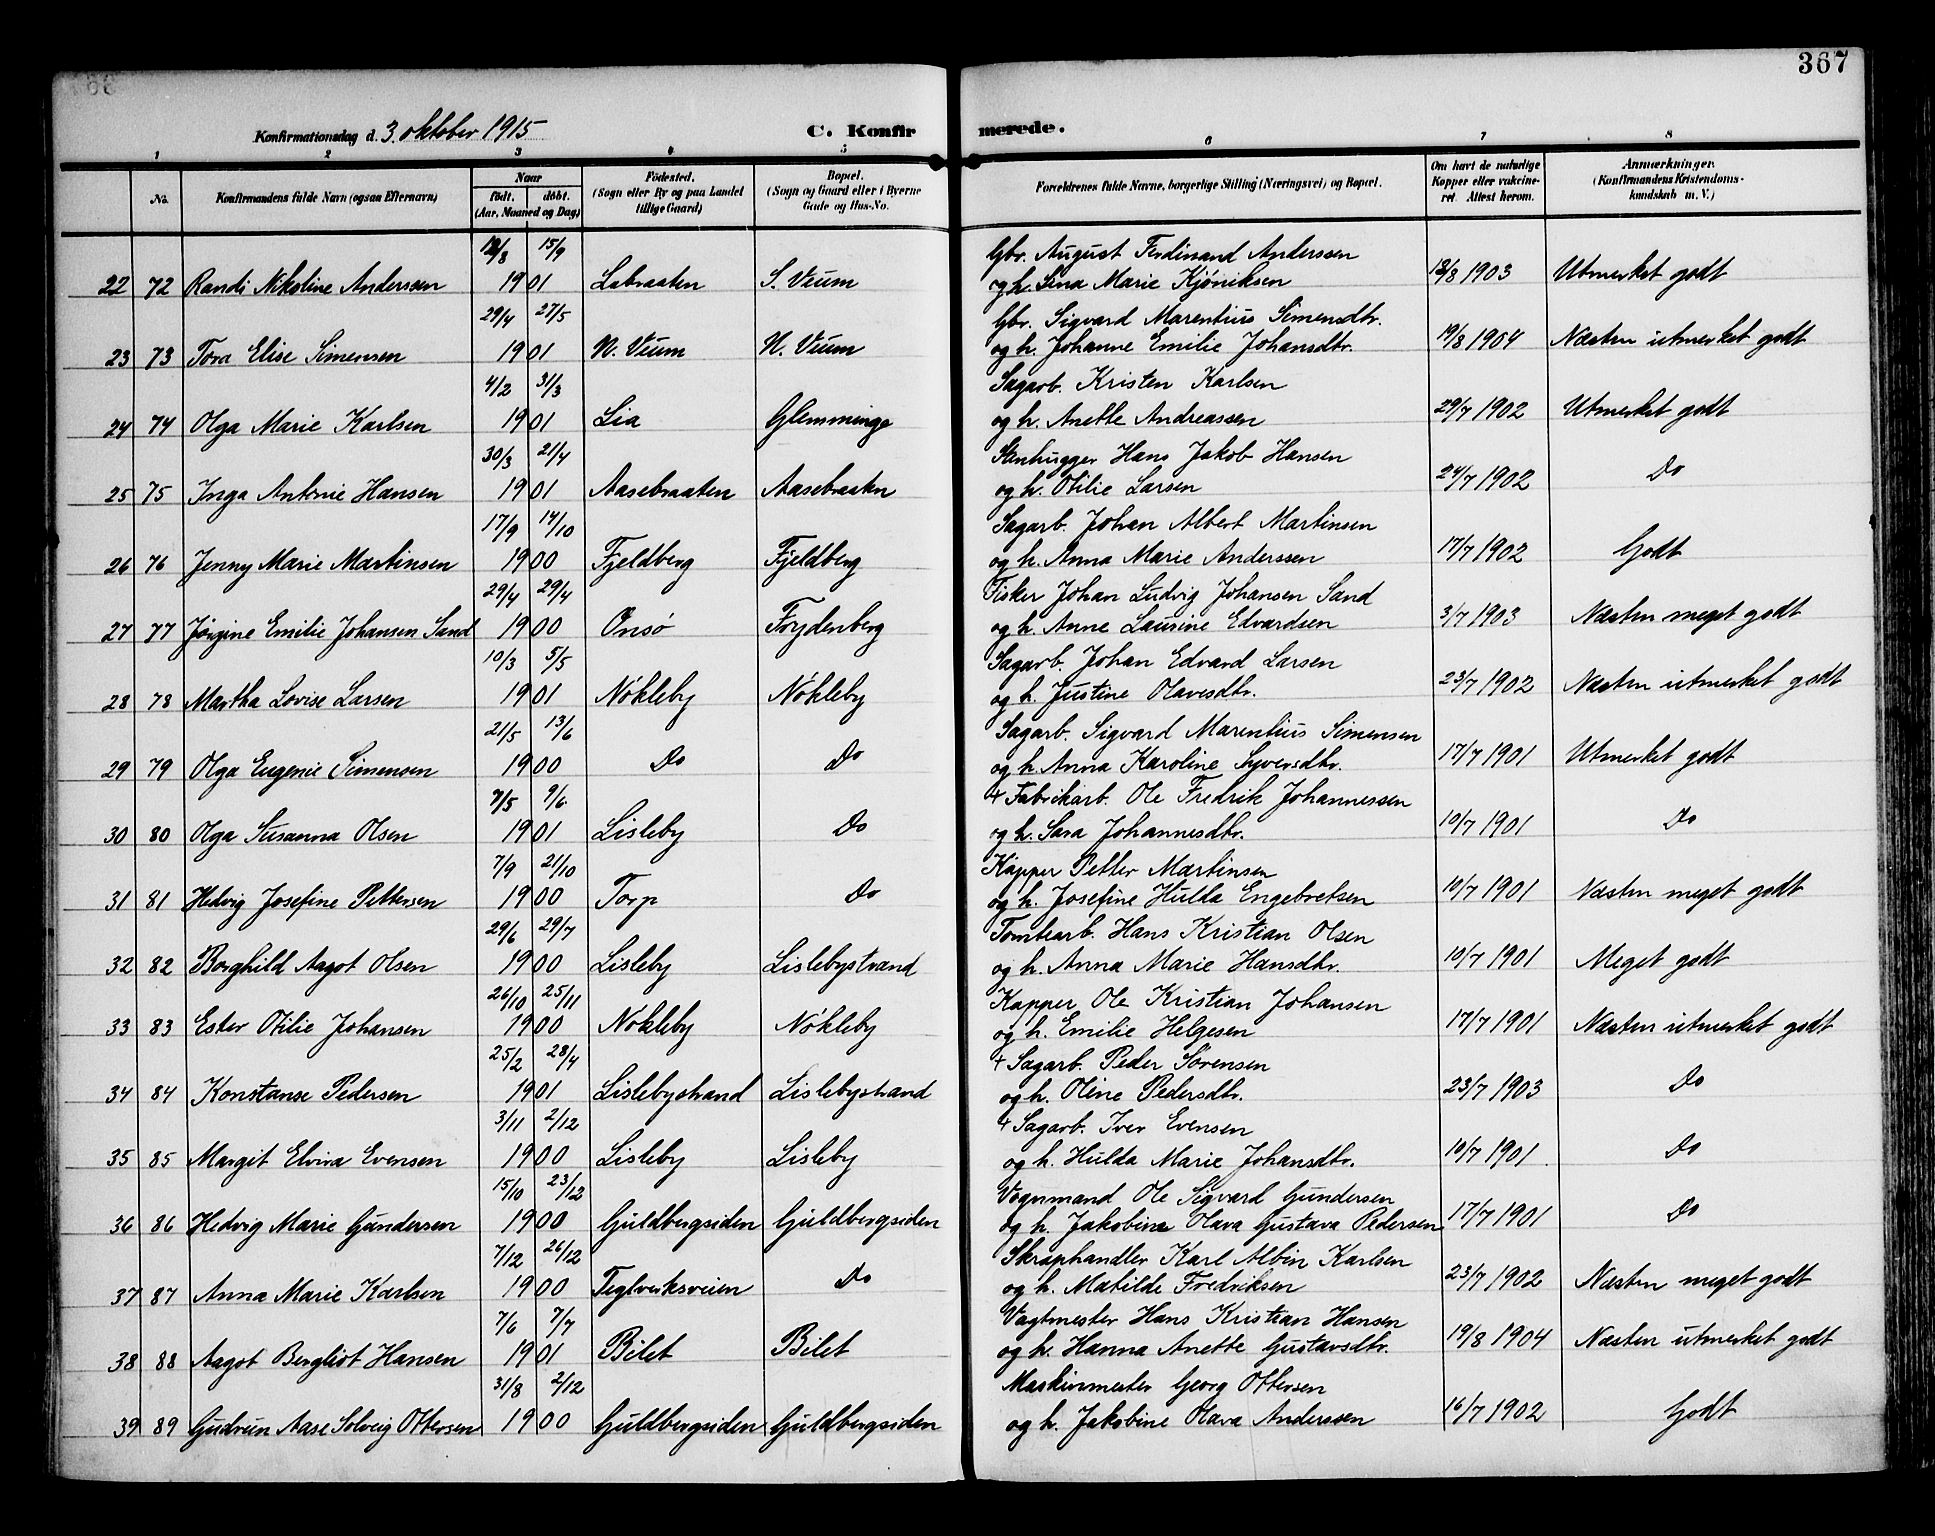 367
Konfirmationsdag d. 3. oktober 1915 C. Konfirmerede.
1 2 3 4 5 6 7 8
No. Konfirmandens fulde Navn (ogsaa Efternavn) Naar født. døbt. (Aar, Maaned og Dag) Födested. (Sogn eller By og paa Landet tillige Gaard) Bopæl. (Sogn og Gaard eller i Byerne Gade og Hus-No. Forældrenes fulde Navne, borgerlige Stilling (Næringsvei) og Bopæl. Om havt de naturlige Kopper eller vakcineret. Attest herom. Anmærkninger. (Konfirmandens Kristendomskundskab m. V.)
/8 15/9 Gbr. August Ferdinand Anderssen
22 72 Randi Nikoline Anderssen 1901 Labraaten S. Veum og h. Lina Marie Kjöniksen 18/8 1903 Utmerket godt
29/4 27/5 Gbr. Sigvard Marentius Simensdtr.
23 73 Tora Elise Simensen 1901 N. Veum N. Veum og h. Johanne Emilie Johansdtr. 19/8 1904 Næsten utmerket godt
4/2 31/3 Sagarb. Kristen Karlsen
24 74 Olga Marie Karlsen 1901 Lia Glemminge og h. Anette Andreassen 29/7 1902 Utmerket godt
30/3 21/4 Stenhugger Hans Jakob Hansen
25 75 Inga Antonie Hansen 1901 Aasebraaten Aasebraaten og h. Otilie Larsen 24/7 1902 Do
17/9 14/10 Sagarb. Johan Albert Martinsen
26 76 Jenny Marie Martinsen 1900 Fjeldberg Fjeldberg og h. Anna Marie Anderssen 17/7 1902 Godt
29/4 29/4 Fisker Johan Ludvig Johansen Sand
27 77 Jörgine Emilie Johansen Sand 1900 Onsö Frydenberg og h. Anne Laurine Edvardsen 3/7 1903 Næsten meget godt
10/3 5/5 Sagarb. Johan Edvard Larsen
28 78 Martha Lovise Larsen 1901 Nökleby Nökleby og h. Justine Olavesdtr. 23/7 1902 Næsten utmerket godt
21/5 13/6 Sagarb. Sigvard Marentius Simensen
29 79 Olga Eugenie Simensen 1900 Do Do og h. Anna Karoline Syversdtr. 17/7 1901 Utmerket godt
7/5 9/6 + Fabrikarb. Ole Fredrik Johannessen
30 80 Olga Susanna Olsen 1901 Lisleby Do og h. Sara Johannesdtr. 10/7 1901 Do
7/9 21/10 Kapper Petter Martinsen
31 81 Hedvig Josefine Pettersen 1900 Torp Do og h. Josefine Hulda Engebretsen 10/7 1901 Næsten meget godt
29/6 29/7 Tomtearb. Hans Kristian Olsen
32 82 Borghild Aagot Olsen 1900 Lisleby Lislebystrand og h. Anna Marie Hansdtr. 10/7 1901 Meget godt
26/10 25/11 Kapper Ole Kristian Johansen
33 83 Ester Otilie Johansen 1900 Nökleby Nökleby og h. Emilie Helgesen 17/7 1901 Næsten utmerket godt
25/2 28/4 + Sagarb. Peder Sörensen
34 84 Konstanse Pedersen 1901 Lislebystrand Lislebystrand og h. Oline Pedersdtr. 23/7 1903 Do
3/11 2/12 + Sagarb. Iver Evensen
35 85 Margit Elvira Evensen 1900 Lisleby Lisleby og h. Hulda Marie Johansdtr. 10/7 1901. Do
15/10 23/12 Vognmand Ole Sigvard Gundersen
36 86 Hedvig Marie Gundersen 1900 Guldbergsiden Guldbergsiden og h. Jakobine Olava Gustava Pedersen 17/7 1901 Do
7/12 26/12 Skraphandler Karl Albin Karlsen
37 87 Anna Marie Karlsen 1900 Teglverksveien Do og h. Matilde Fredriksen 23/7 1902 Næsten meget godt
7/6 7/7 Vagtmester Hans Kristian Hansen
38 88 Aagot Bergliot Hansen 1901 Bilet Bilet og h. Hanna Anette Gustavsdtr. 19/8 1904 Næsten utmerket godt
31/8 2/12 Maskinmester Georg Ottersen
39 89 Gudrun Aase Solveig Ottersen 1900 Guldbergsiden Guldbergsiden og h. Jakobine Olava Anderssen 16/7 1902 Godt